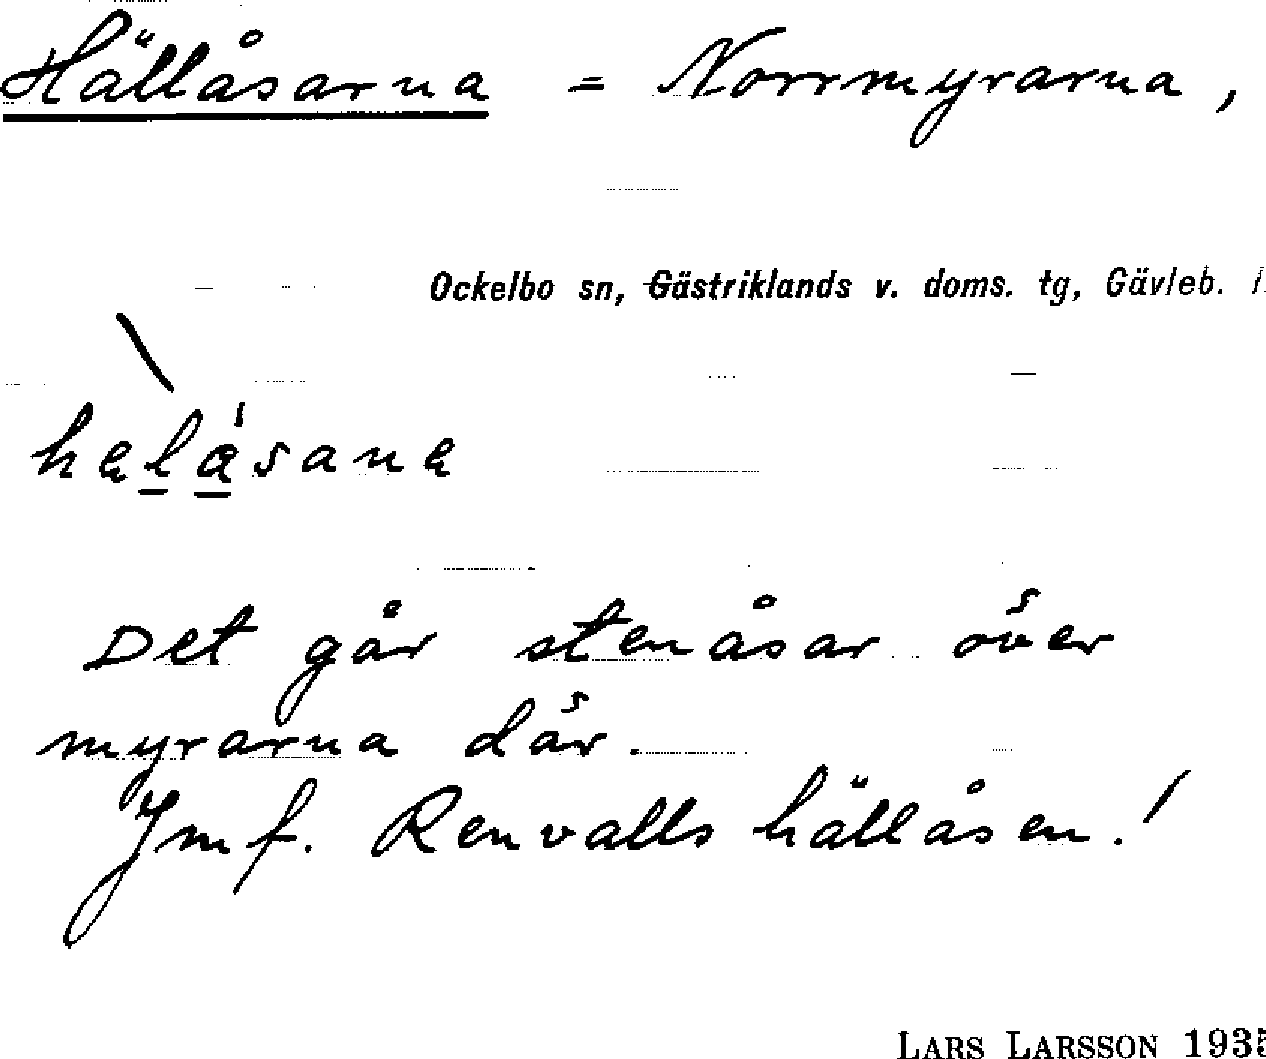 Hällåsarna = Norrmyrarna,
Ockelbo sn, Gästriklands v. doms. tg, Gävleb. l.
Det går stenåsar över
myrarna där.
Jmf. Renvalls hällåsen.!
LARS LARSSON 1935